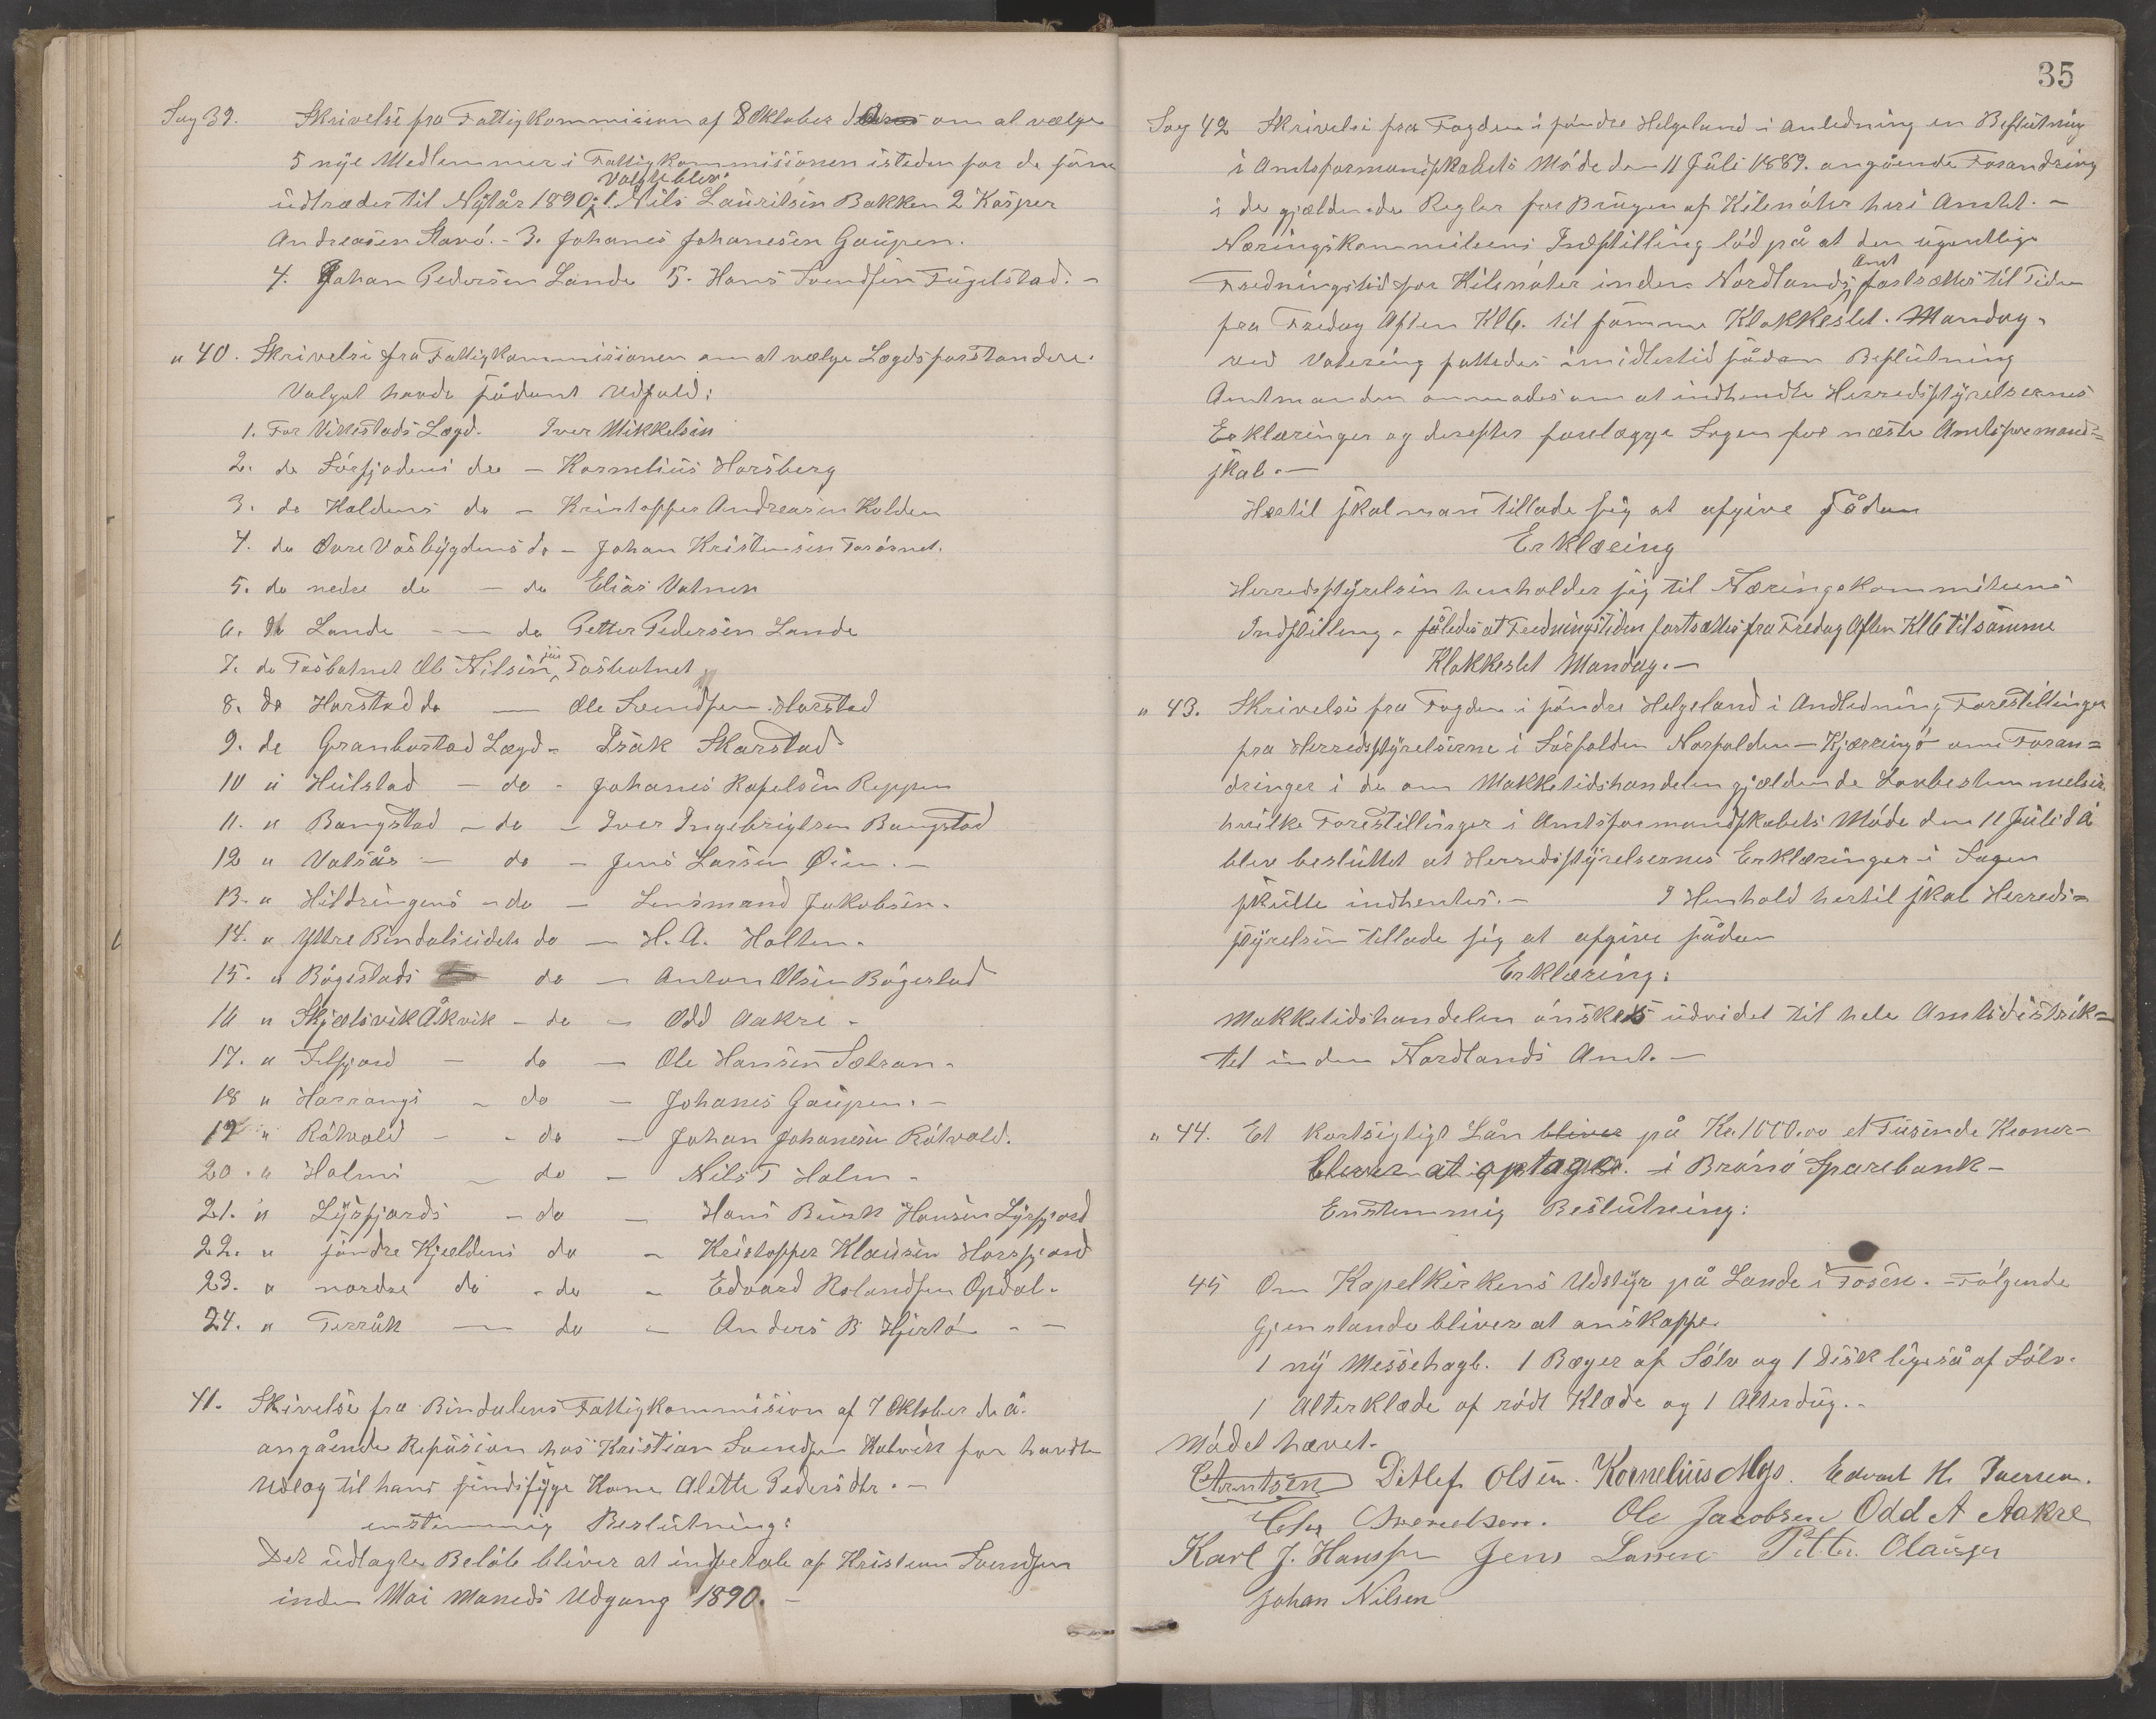 Sag 39. Skrivelse fra Fattigkommision af 8 Oktober d om at vælge
5 nye Medlemmer i Fattigkommisionen isteden for de som
Valgte blev:
udtræder til Nytår 1890: 1. Nils Lauritsen Bakken 2 Kasper
Andreasen Harö. - 3. Johanes Johanesen Gaupen.
4. Johan Pedersen Lande 5. Hans Svendsen Fugelstad. -
" 40. Skrivelse fra Fattigkommisionen om at vælge Lægdsforstandere.
Valget havde sådant Udfald:
1. For Vikestads Lægd. Iver Mikkelsen
2. do Sörfjordens do - Kornelius Horsberg
3. do Holdens do - Kristoffer Andreasen Kolden
4. do Övre Våsbygdens do - Johan Kristensen
5. do nedre do - do Elias Vatnen
6. do Lande - - do Petter Pedersen Lande
jun
7. do Tosbotnet Ol Nilsen Tosbotnet
8. do Horstad do - Ole Svendsen Horstad
9. do Granbostad Lægd - Isak Skarstad
10 " Heilstad - do - Johanes Rafelsen Reppen
11. " Bangstad - do - Iver Ingebrigtsen Bangstad
12 " Vatsås - do - Jens Larsen Öien. -
13. " Hildringens - do - Lensmand Jakobsen.
14. " Yttre Bindalseidets do - H. A. Holten.
15. " Bögestads do - Anton Olsen Bögestad
16 " Skjelsvik Åkvik - do - Odd Aakre -
17. " Selfjord - do - Ole Hansen Sætran -
18 " Harrangs - do - Johanes Gaupen. -
19 " Råtvold - - do - Johan Johanesen Råtvold.
20. " Holms - do - Nils T Holm -
21. " Lysfjords - do - Hans Buck Hansen Lysfjord
22. " söndre Kjeldens do - Kristoffer Klausen Horsfjord
23. " nordre do - do - Edvard Rolandsen Opdal -
24. " Terråk - do - Anders B Hjertö - -
41. Skivelse fra Bindalens Fattigkommision af 7 Oktober d. å.
angående Refusion hos Kristian Svendsen Holvik for havdte
Udlæg til hans sindsyge Kone Alette Pedersdtr. -
enstemmig Beslutning:
Det udlagte Belöb bliver at indbetale af Kristian Svendsen
inden Mai Maneds Udgang 1890. -
35
Sag 42 Skrivelse fra Fogden i söndre Helgeland i Anledning en Beslutning
i Amtsformandskabets Möde den 11 Juli 1889. angående Forandring
i de gjældende Regler for Brugen af Kilenöter her i Amtet. -
Næringskommiteens Indstilling löd på at den ugentlige
Amt
Fredningstid for Kilenöter inden Nordlands fastsættes til Tiden
fra Fredag Aften Kl 6. til samme Klokkeslet. Mandag.
ved Votering fattedes imidlertid sådan Beslutning
Amtmanden anmodes om at indhendte Herredstyrelsernes
Erklæringer og derefter forelægge Sagen for næste Amtsformand=
skab. -
Hertil skal man tillade sig at afgive sådan
Erklæring
Herredstyrelsen henholder sig til Næringskommiteens
Indstilling - således at Fredningstiden fastsættes fra Fredag Aften Kl 6 til samme
Klokkeslet Mandag. -
" 43. Skrivelse fra Fogden i söndre Helgeland i Andledning Forestillinger
fra Herredstyrelserne i Sörfolden Norfolden - Kjærringö om Foran=
dringer i de om Makketidshandelen gjældende Lovbestemmelser
hvilke Forestillinger i Amtsformandskabets Möde den 11 Juli d å
blev besluttet at Herredsstyrelsernes Erklæringer i Sagen
skulle indhentes. - I Henhold hertil skal Herreds=
styrelsen tillade sig at afgive sådan
Erklæring:
Makketidshandelen önskes udvidet til hele Amtsdistrik=
tet inden Nordlands Amt. -
" 44. Et kortsigtigt Lån bliver på Kr. 1000.00 et Tusinde Kroner -
bliver at optage. i Brönö Sparebank -
Enstemmig Beslutning:
45 Om Kapelkirkens Udstyr på Lande i Tosen. - Fölgende
Gjenstande bliver at anskaffe.
1 ny Messehagl. 1 Bæger af Sölv og 1 Disk ligeså af Sölv.
1 Alterklæde af rödt Klæde og 1 Alterdug. -
Mödet hævet.
CArntsen Ditlef Olsen. Kornelius Mgs. Edvart H. Iversen.
Chr Svendsen. Ole Jacobsen Odd A Aakre
Karl J. Hanssen Jens Larsen Petter Olausen
Johan Nilsen